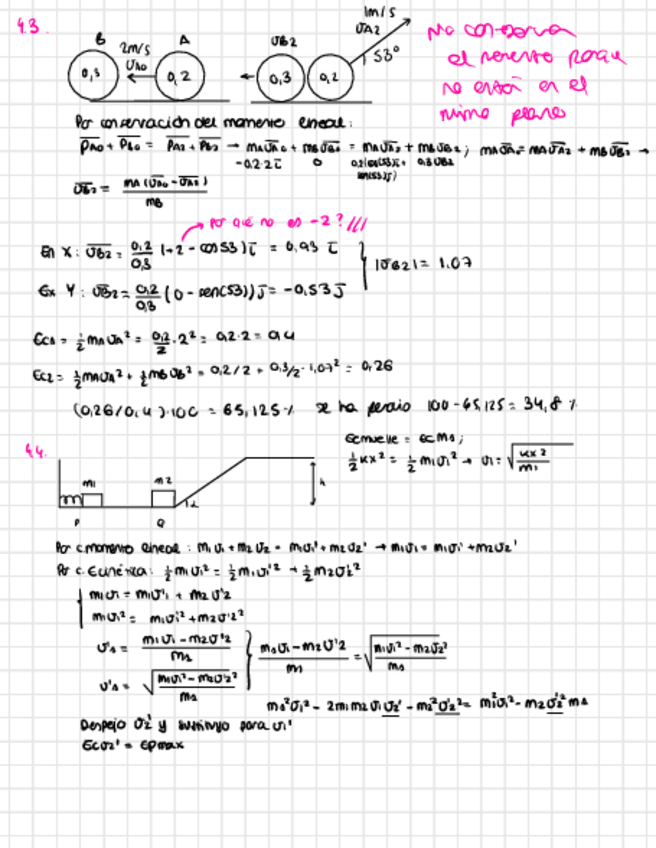 4.3
B
A
2m/s
0,3
0,2
UB2
0,3
0,2
1m/s
UA2
53°
No conserva
el momento porque
no están en el
mismo plano
Por conservación del momento lineal:
PA0 + PB0 = PA2 + PB2 → mAUA0 + mBUB0 = mAUA2 + mBUB2 ; mAUA0 = mAUA2 + mBUB2 →
-0,2·2i 0
UB2 = mA (UA0 - UA2) / mB
Por qué no es -2? ///
En X: UB2 = 0,2/0,3 (+2 - cos53) i = 0,93 i
En Y: UB2 = 0,2/0,3 (0 - sen(53)) j = -0,53 j
|UB2| = 1.07
Ec1 = ½ mAUA² = 0,2/2 · 2² = 0,2·2 = 0,4
Ec2 = ½ mAUA² + ½ mBUB² = 0,2/2 + 0,3/2 · 1,07² = 0,26
(0,26/0,4)·100 = 65,125% se ha perdido 100 - 65,125 = 34,8 %
4.4.
m1
m2
h
α
P
Q
Ecmuelle = Ecm1 ;
½ kx² = ½ m1U1² → U1 = √(kx²/m1)
Por c. momento lineal : m1U1 + m2U2 = m1U1' + m2U2' → m1U1 = m1U1' + m2U2'
Por c. E cinética : ½ m1U1² = ½ m1U1'² + ½ m2U2'²
m1U1 = m1U'1 + m2U'2
m1U1² = m1U1'² + m2U'2²
U'1 = (m1U1 - m2U'2) / m1
U'1 = √((m1U1² - m2U'2²) / m1)
(m1U1 - m2U'2) / m = √((m1U1² - m2U2'²) / m1)
m1²U1² - 2m1m2U1U2' - m2²U2'² = m1²U1² - m2U2'²m1
Despejo U2' y sustituyo para U1'
EcU2' = Epmax